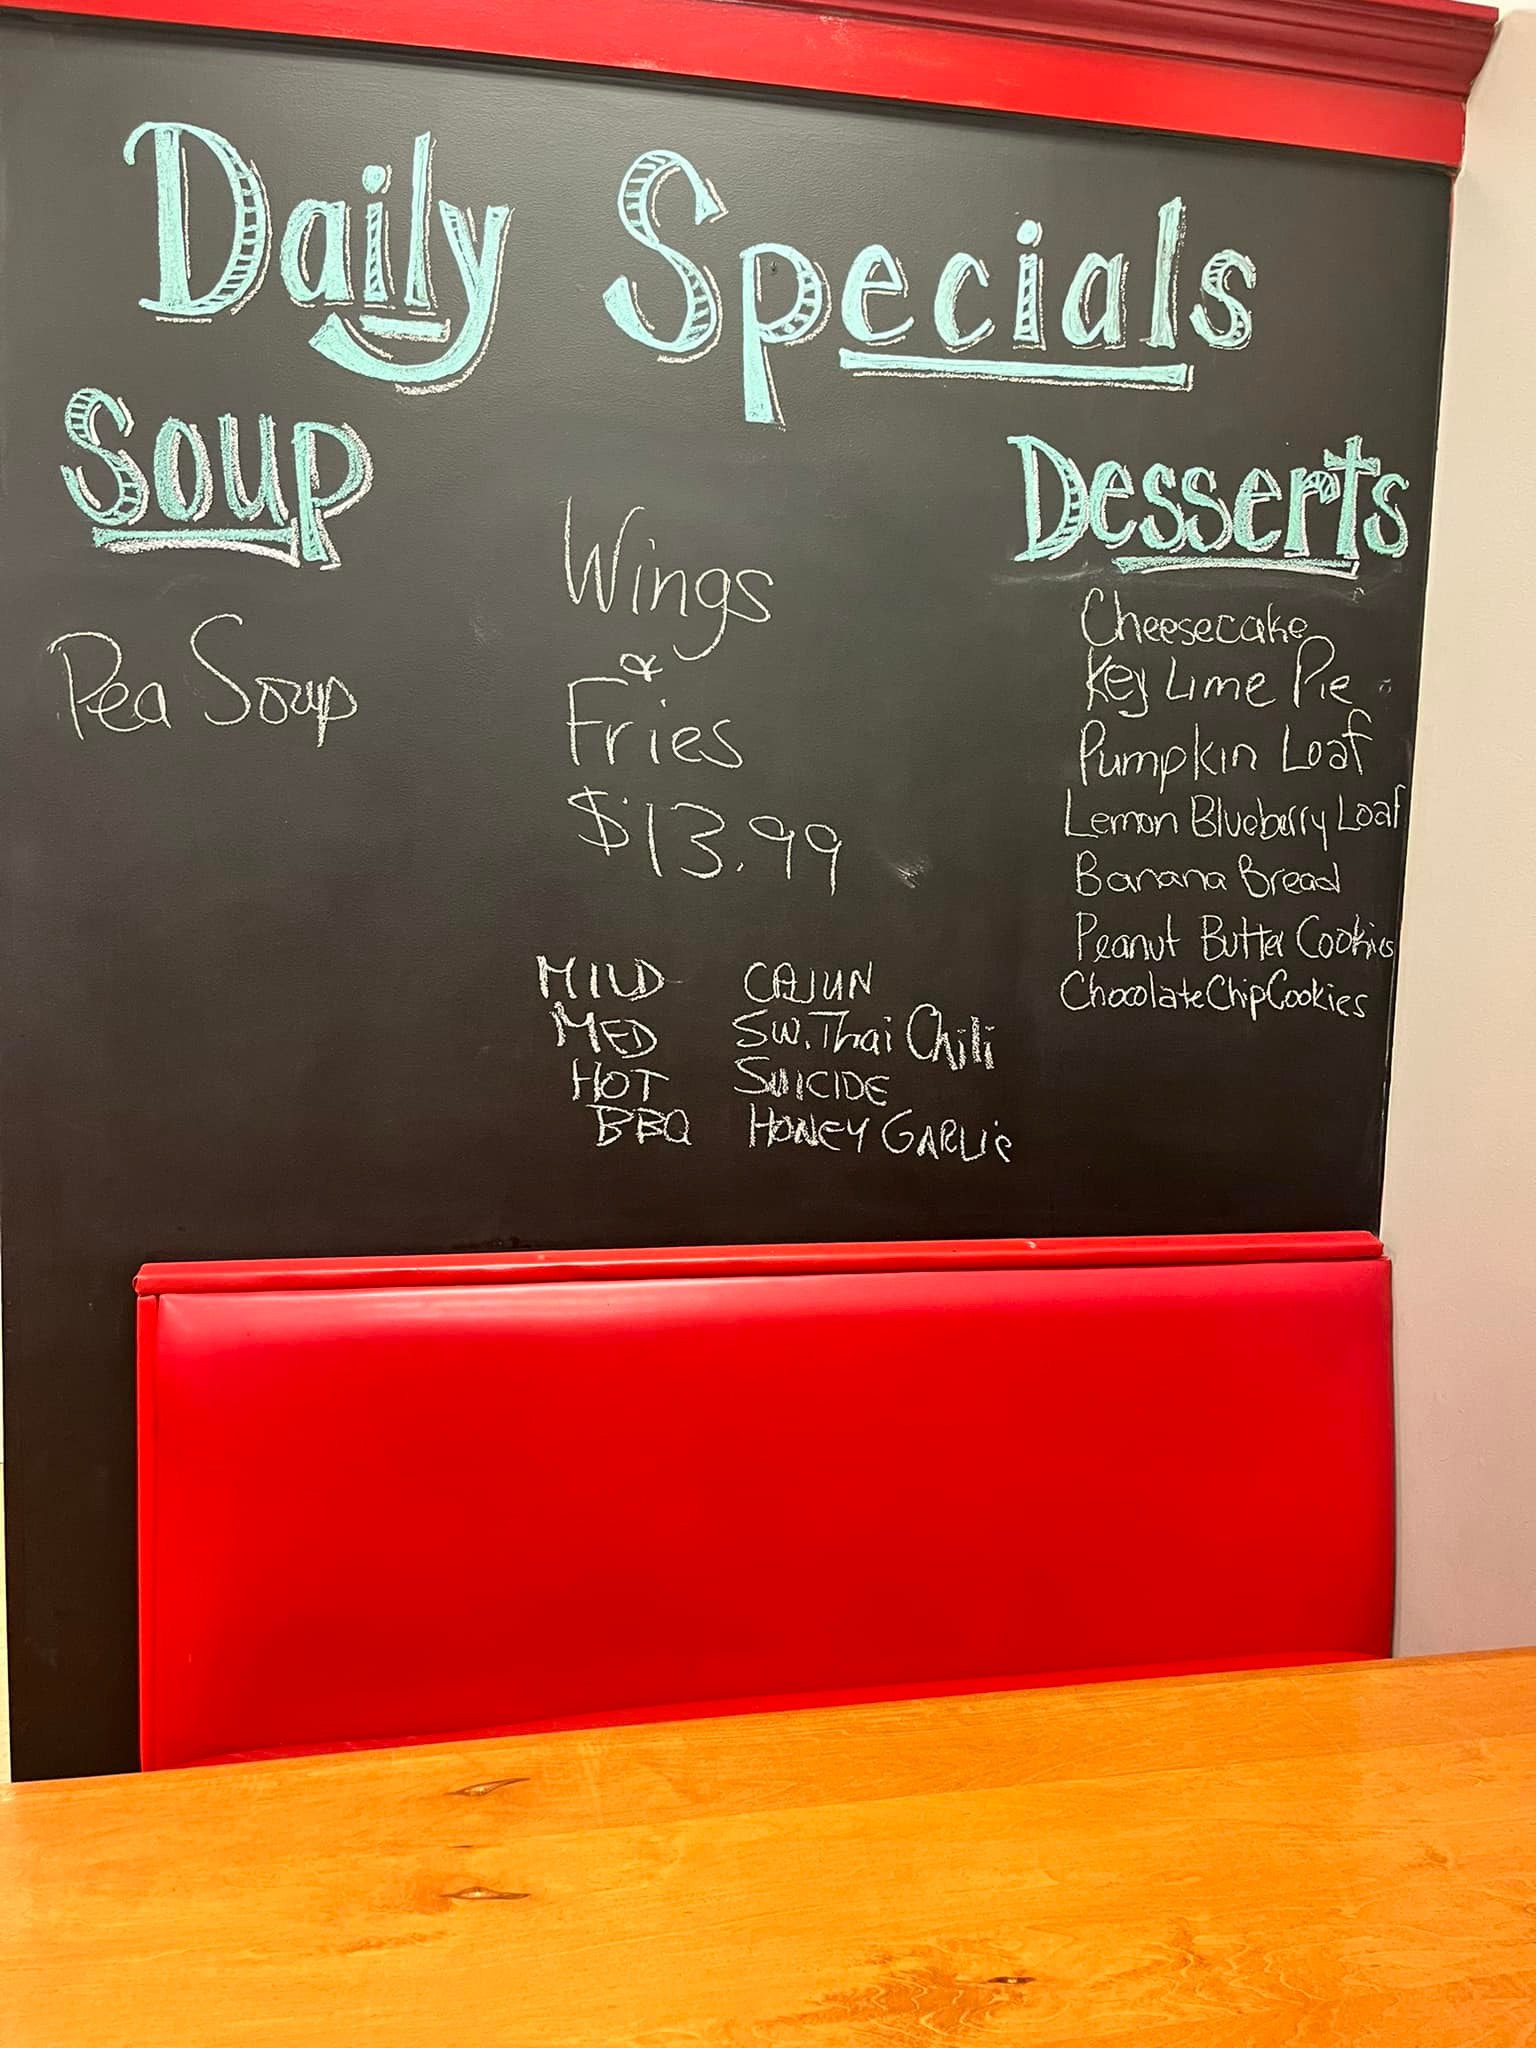 Daily Specials
Soup
Pea Soup
Wings
&
Fries
$13.99
MILD CAJUN
MED SW. Thai Chili
HOT SUICIDE
BBQ HONEY GARLic
Desserts
Cheesecake
Key Lime Pie
Pumpkin Loaf
Lemon Blueberry Loaf
Banana Bread
Peanut Butter Cookies
Chocolate Chip Cookies